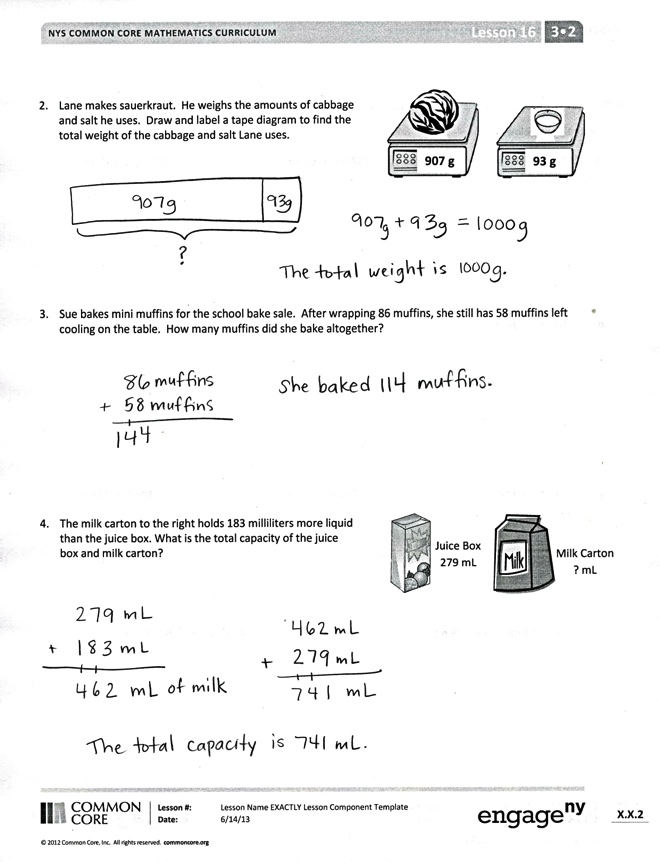 NYS COMMON CORE MATHEMATICS CURRICULUM Lesson 16 3•2
2. Lane makes sauerkraut. He weighs the amounts of cabbage
and salt he uses. Draw and label a tape diagram to find the
total weight of the cabbage and salt Lane uses.
907 g 93 g
907g 93g
?
907g + 93g = 1000g
The total weight is 1000g.
3. Sue bakes mini muffins for the school bake sale. After wrapping 86 muffins, she still has 58 muffins left
cooling on the table. How many muffins did she bake altogether?
86 muffins
+ 58 muffins
144
She baked 114 muffins.
4. The milk carton to the right holds 183 milliliters more liquid
than the juice box. What is the total capacity of the juice
box and milk carton?
Juice Box
279 mL
Milk
Milk Carton
? mL
279 mL
+ 183 mL
462 mL of milk
462 mL
+ 279 mL
741 mL
The total capacity is 741 mL.
COMMON
CORE
Lesson #: Lesson Name EXACTLY Lesson Component Template
Date: 6/14/13
engageny
X.X.2
© 2012 Common Core, Inc. All rights reserved. commoncore.org